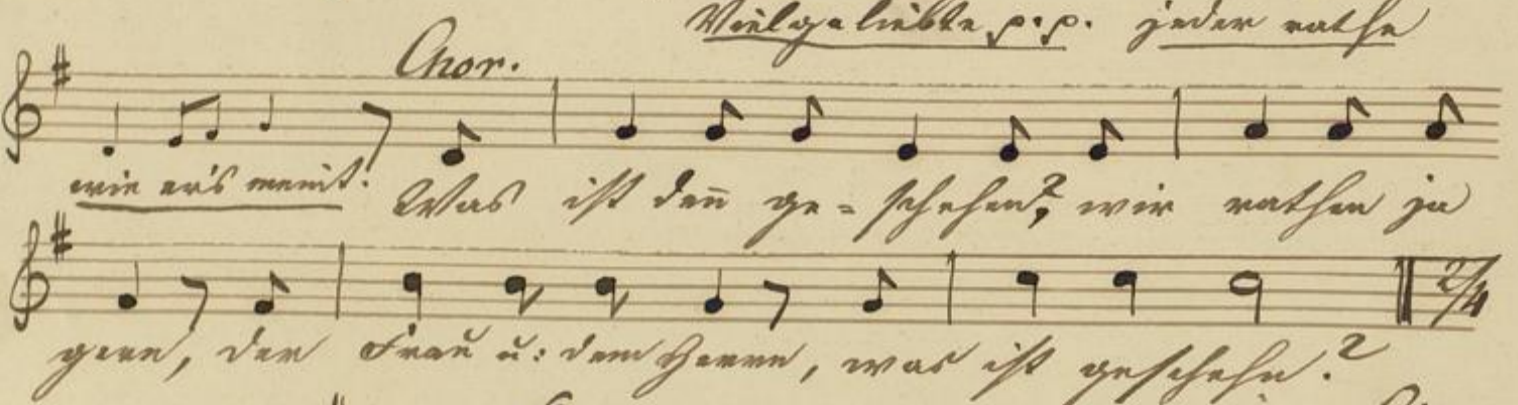 Vielgeliebte p.p. jeder rathe
Chor.
wie er's meint! Was ist den̄ ge- schehen? wir rathen ja
gern, der Frau u: dem Herrn, was ist geschehn?
2/4